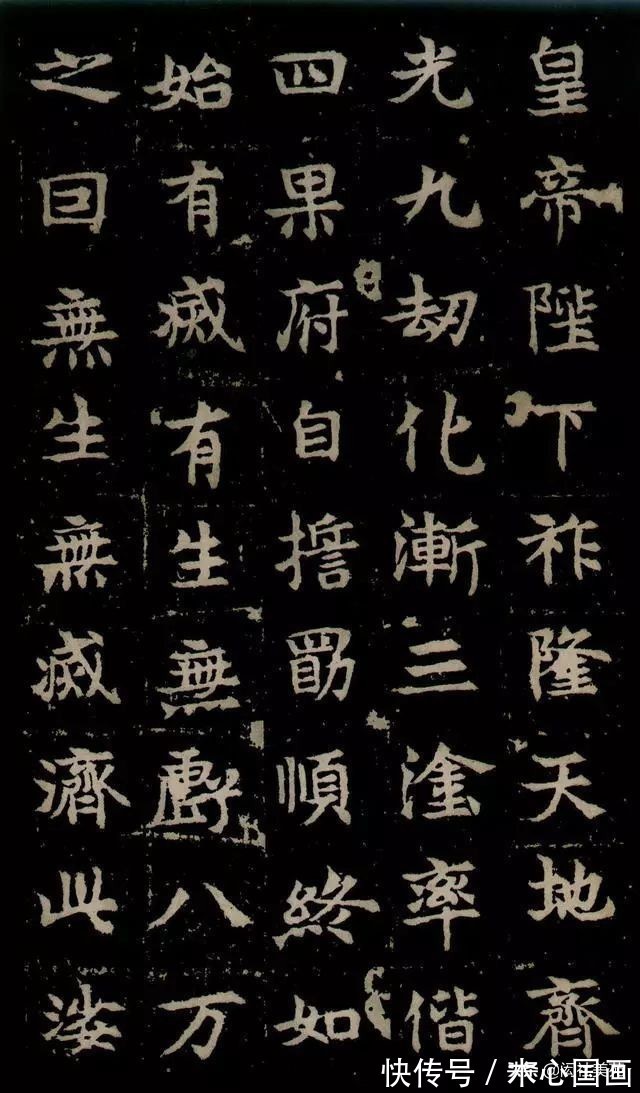 皇帝陛下祚隆天地齊
光九劫化漸三塗率偕
四果府自擔勖順終如
始有滅有生無處八万
之曰無生無滅濟此娑
快传号／木心国画
头条